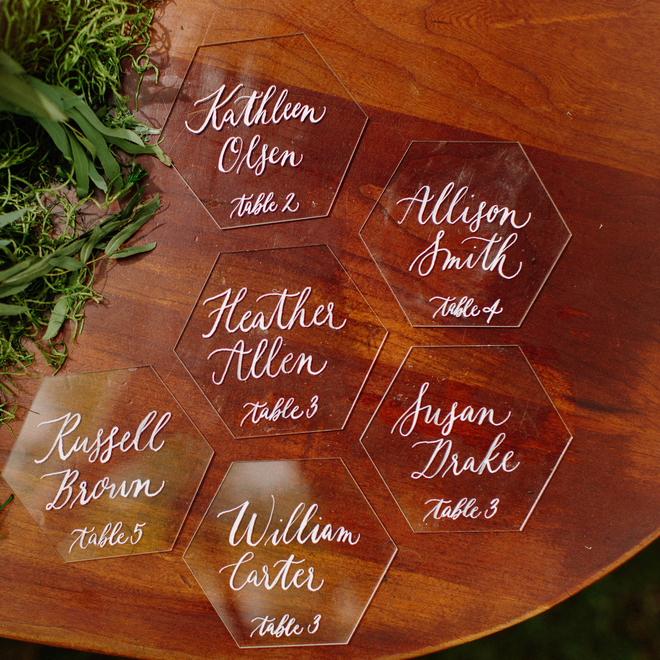 Kathleen
Olsen
table 2
Allison
Smith
table 4
Heather
Allen
table 3
Susan
Drake
table 3
Russell
Brown
table 5
William
Carter
table 3